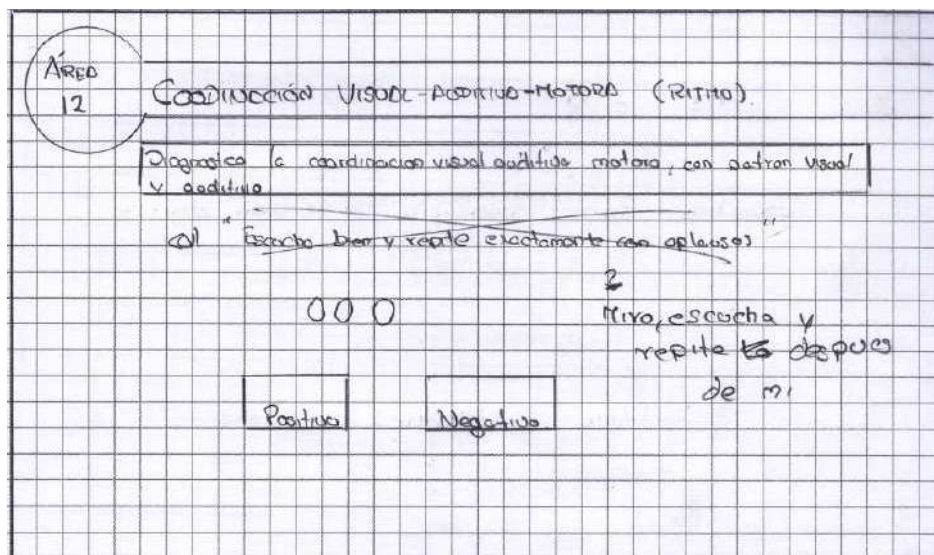 ÁREA
12
COODINACCIÓN VISUAL-AUDITIVO-MOTORA (RITMO).
Diagnostica la coordinacion visual auditiva motora, con patron visual
y auditivo
a) "Escucha bien y repite exactamente con aplausos"
2
Mira, escucha y
repite después
de mi
Positivo Negativo